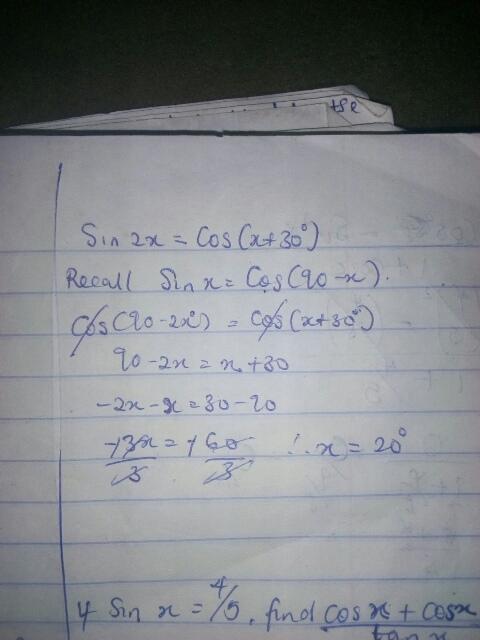 Sin 2x = Cos(x+30°)
Recall Sin x = Cos(90-x).
Cos(90-2x°) = Cos(x+30°)
90-2x = x+30
-2x-x = 30-90
-3x/3 = -60/3 ∴ x = 20°
4 Sin x = 4/5, find cos x + cos x
tan x